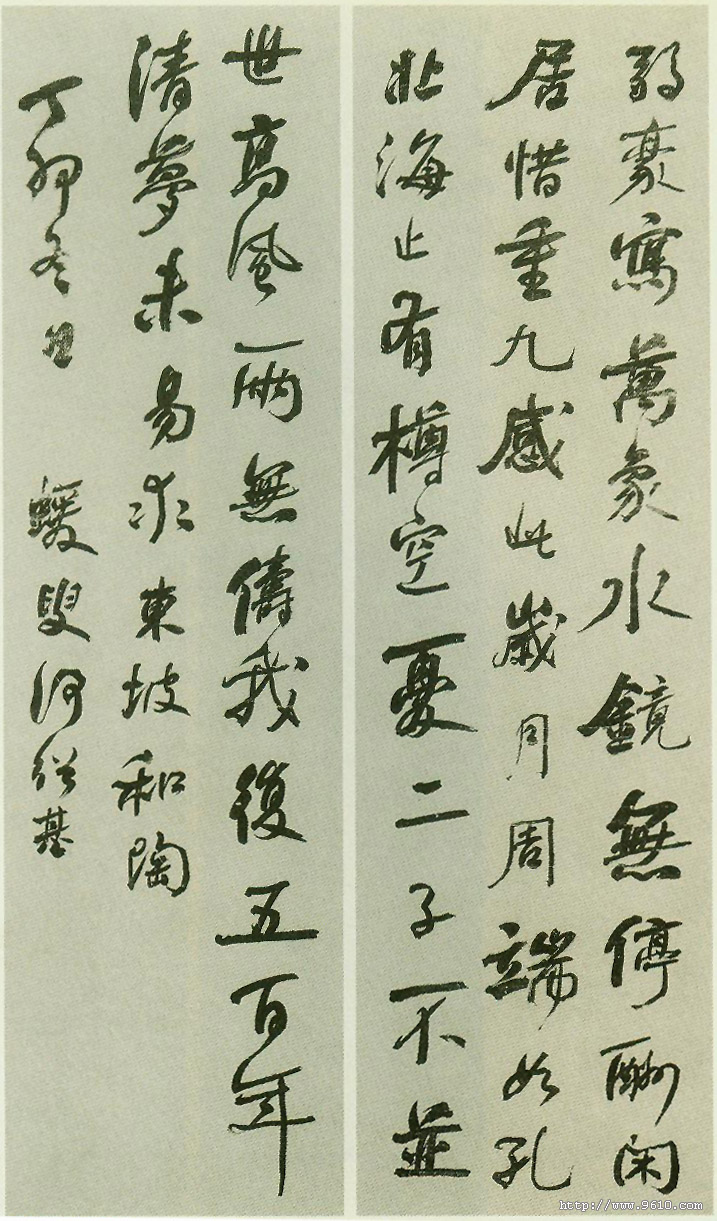 弱豪寫萬象水鏡無停酬閑
居惜重九感此歲月周端如孔
北海止有樽空憂二子不並
世高風兩無儔我復五百年
清夢未易求東坡和陶
丁卯冬日 蝯叟何紹基
http://www.9610.com